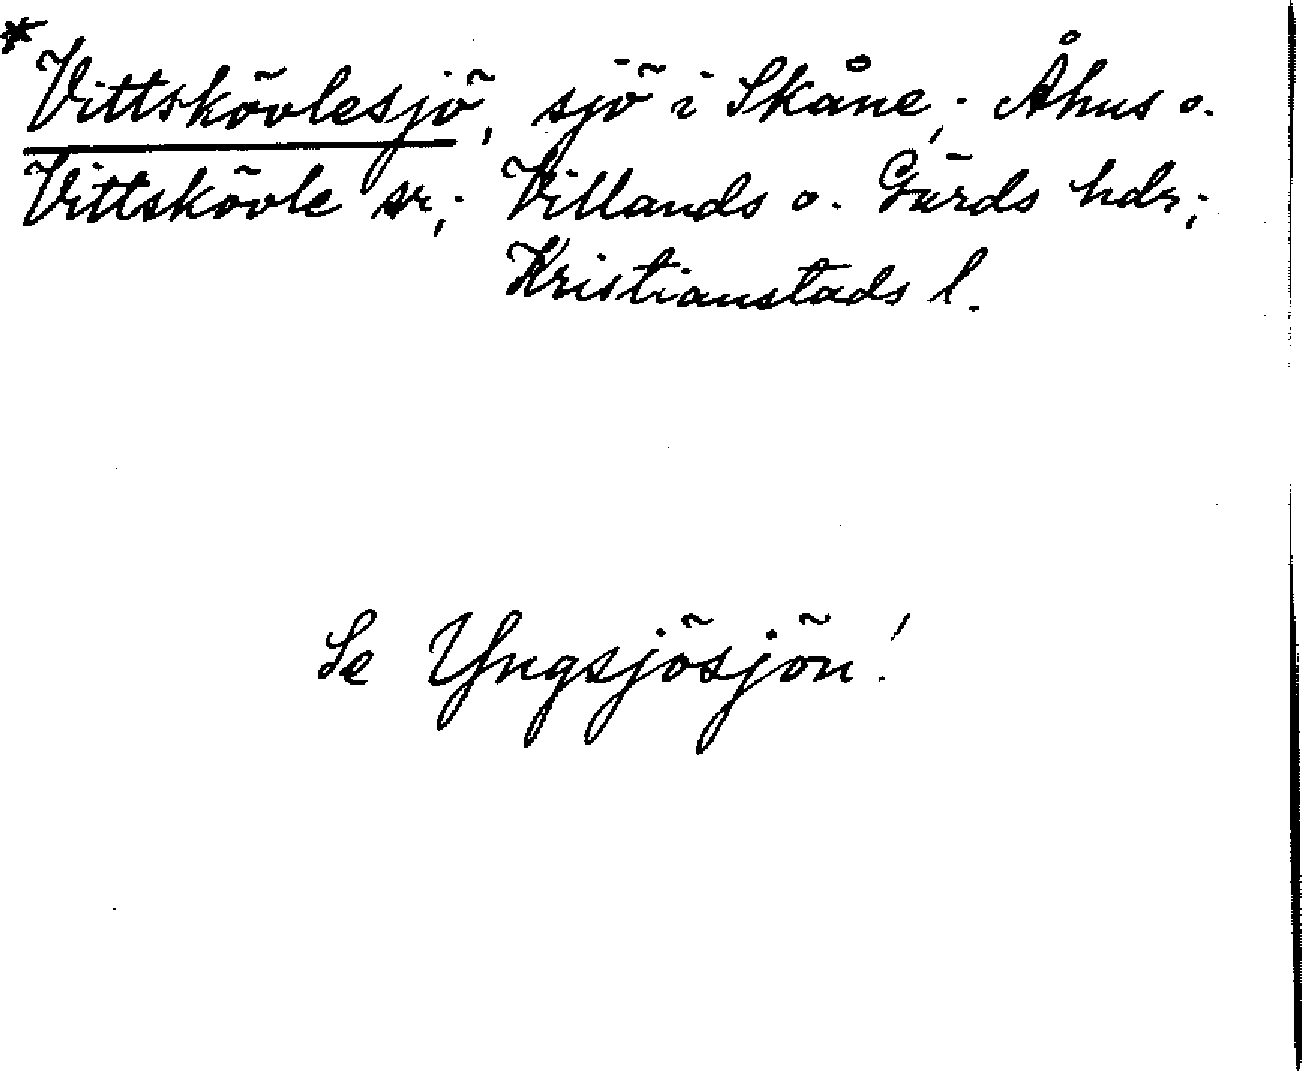 *
Vittskövlesjö, sjö i Skåne; Åhus o.
Vittskövle sr; Villands o. Gärds hdr;
Kristianstads l.
Se Yngsjösjön!